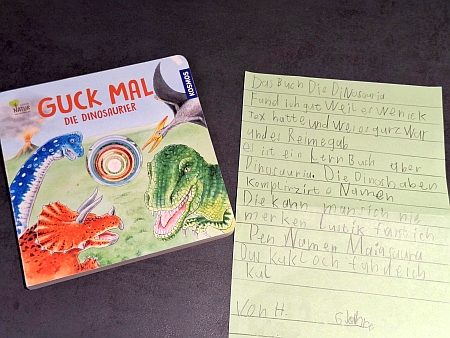 NATUR
GUCK MAL
DIE DINOSAURIER
KOSMOS
Das Buch Die DiNosauria
Fand ich gut Weil es wenick
Tex hatte und wai es gurz War
und es Reime gab
es ist ein LernBuch über
Dinosauria. Die Dinos haben
Komplinzirte Namen
Die kann man sich nie
merken Lustik fand ich
Den Namen Maiasaura
Das kukLoch fand ich
kul
Von H. 6 Jahre